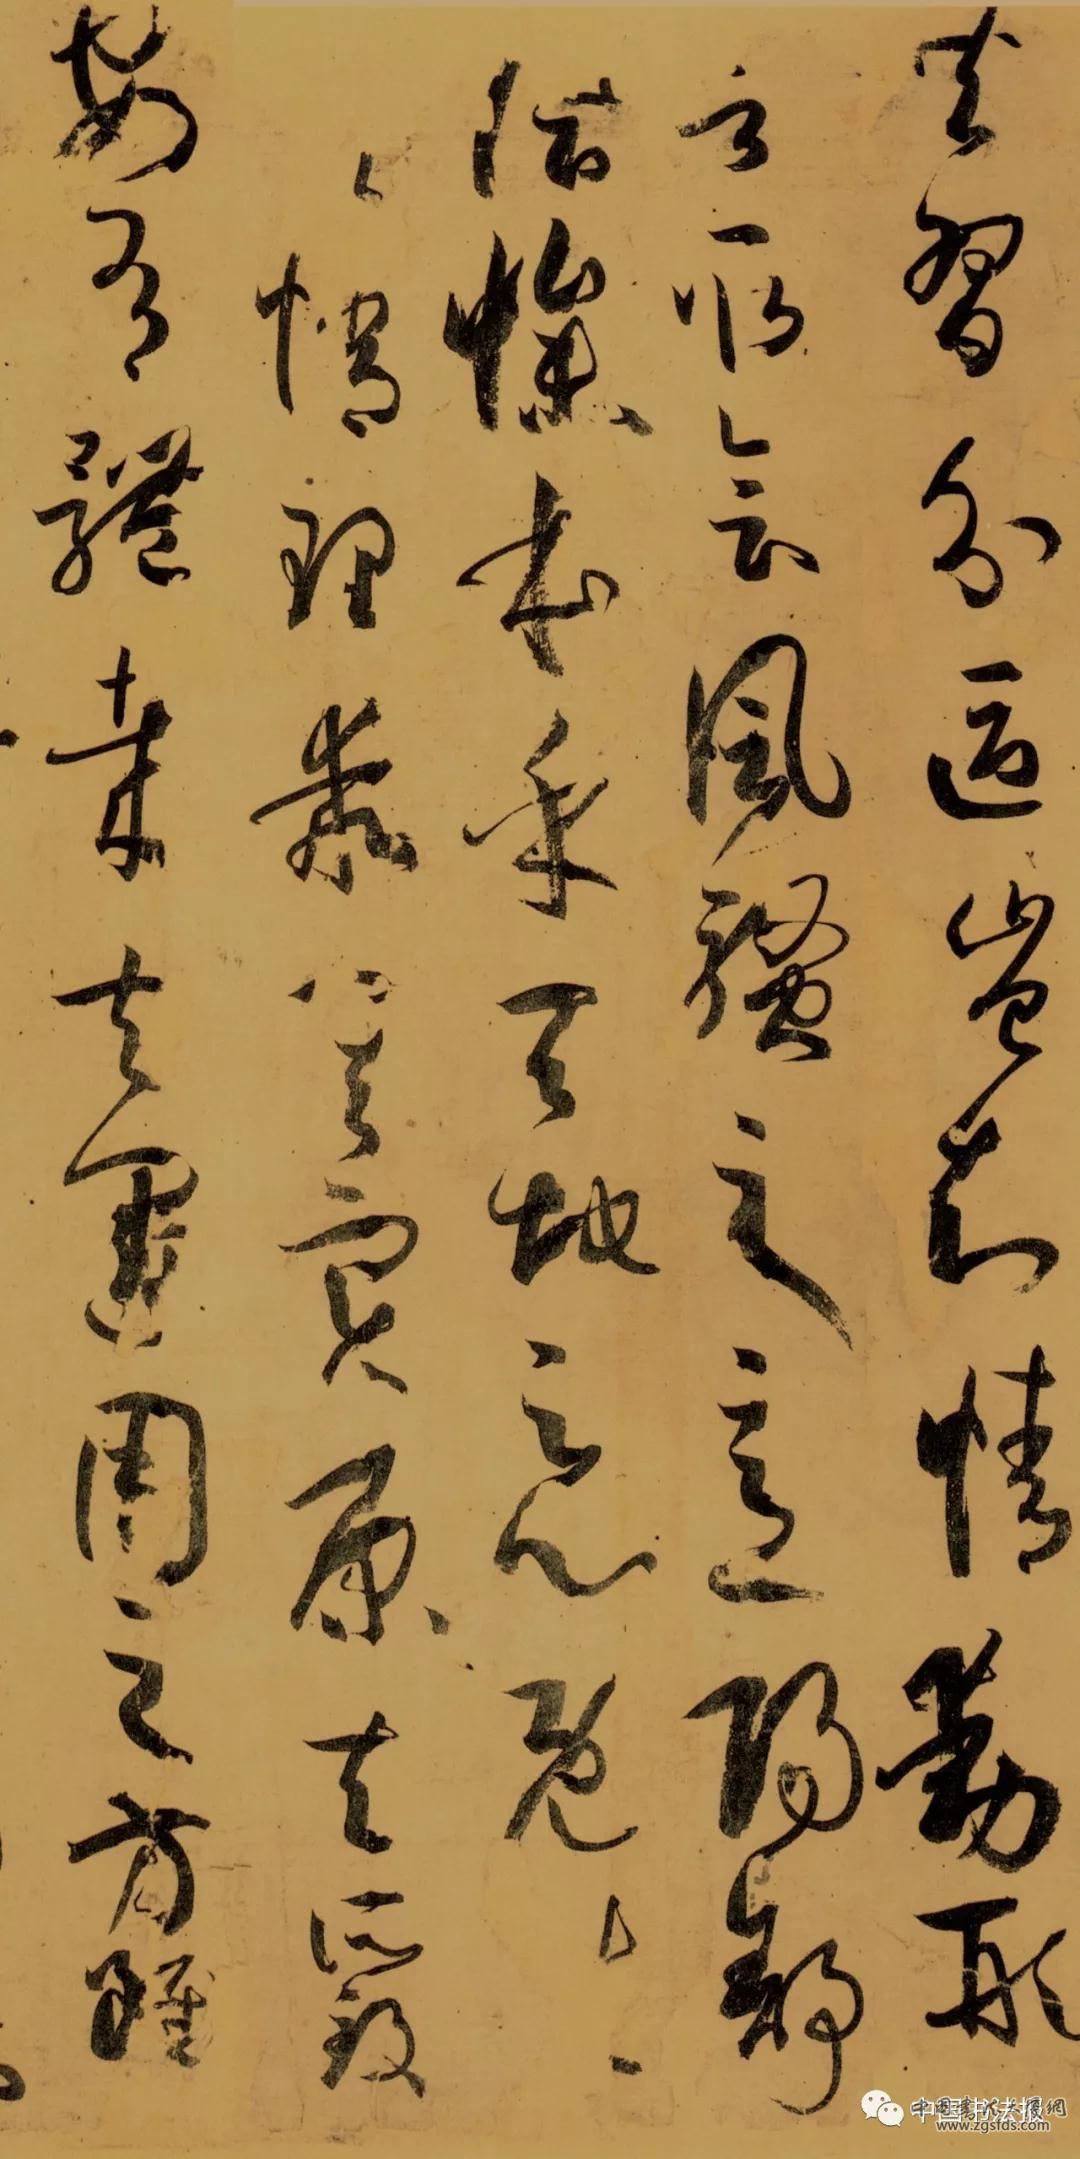 共習分區豈知情動形
言取會風騷之意陽舒
陰慘本乎天地之心既
情理乖其實原夫所致
安有體哉夫運用之方雖
中国书法报
www.zgsfds.com